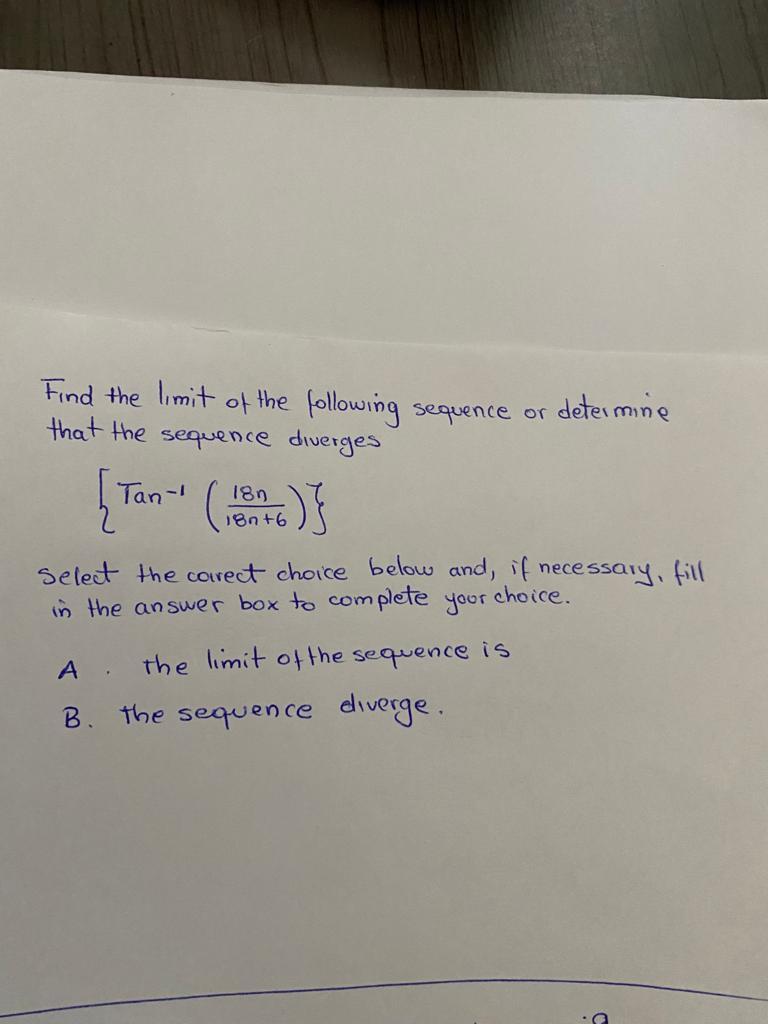 Find the limit of the following sequence or determine
that the sequence diverges
{Tan-1 (18n/18n+6)}
Select the correct choice below and, if necessary, fill
in the answer box to complete your choice.
A . the limit of the sequence is
B. the sequence diverge.